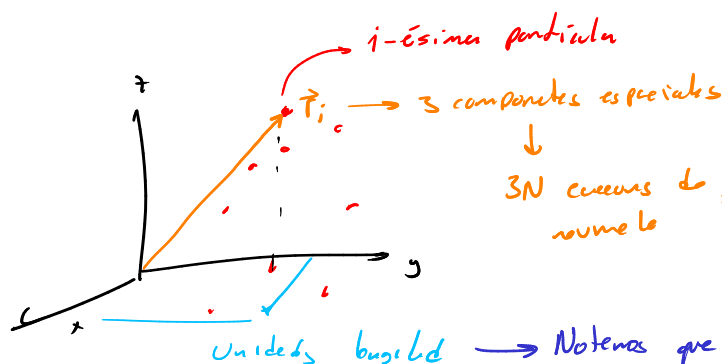 i-ésima partícula
z
r⃗i → 3 componetes espaciales
↓
3N
y
x
Unidades longitud → Notemos que